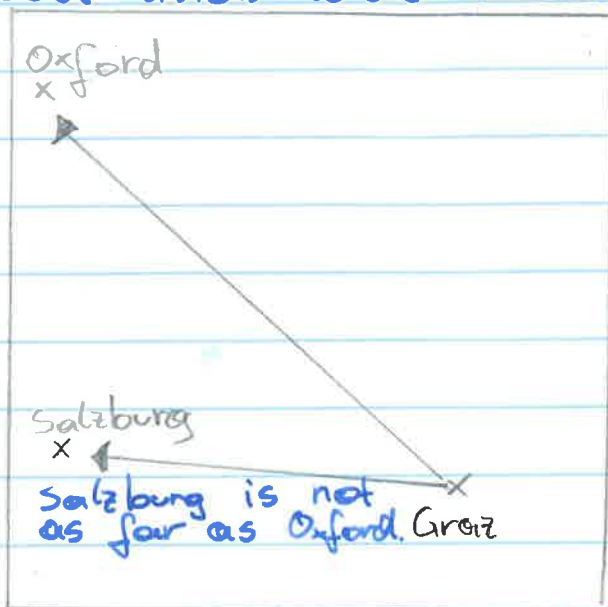 Oxford
x
Salzburg
x
x
Salzburg is not
as far as Oxford. Graz